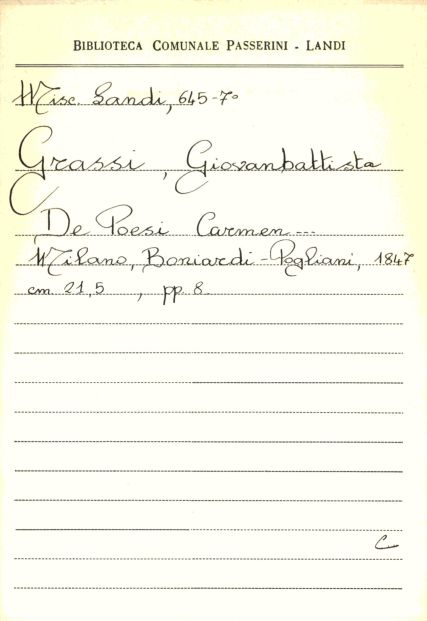 BIBLIOTECA COMUNALE PASSERINI - LANDI
Misc. Landi, 645-7°
Grassi, Giovanbattista
De Poesi Carmen...
Milano, Boniardi-Pogliani, 1847
cm. 21,5, pp. 8.
C